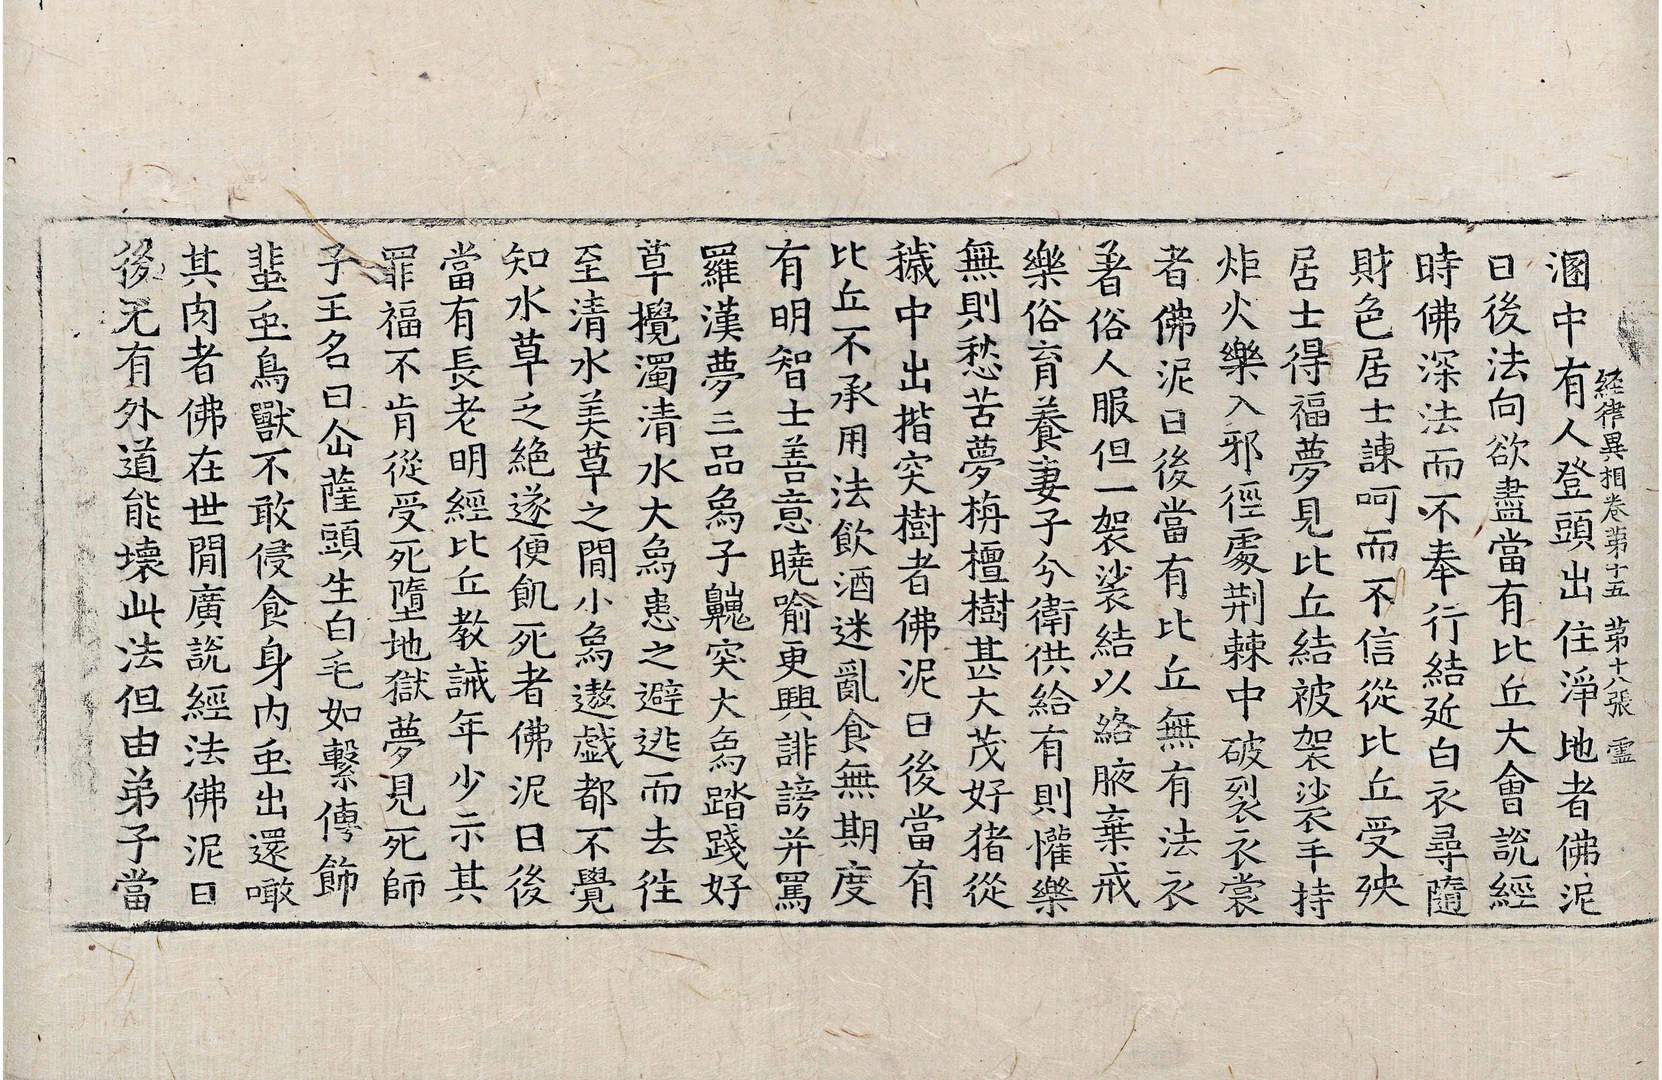 經律異相卷第十五 第十八張 靈
溷中有人登頭出住淨地者佛泥
曰後法向欲盡當有比丘大會說經
時佛深法而不奉行結近白衣尋隨
財色居士諫呵而不信從比丘受殃
居士得福夢見比丘結被袈裟手持
炬火樂入邪徑處荆棘中破裂衣裳
者佛泥曰後當有比丘無有法衣
著俗人服但一袈裟結以絡腋棄戒
樂俗育養妻子分衛供給有則懽樂
無則愁苦夢栴檀樹甚大茂好猪從
穢中出揩突樹者佛泥曰後當有
比丘不承用法飲酒迷亂食無期度
有明智士善意曉喻更興誹謗并罵
羅漢夢三品爲子齆突大爲踏踐好
草攪濁清水大爲患之避逃而去往
至清水美草之閒小爲遨戲都不覺
知水草乏絶遂便飢死者佛泥曰後
當有長老明經比丘教誡年少示其
罪福不肯從受死墮地獄夢見死師
子王名曰仚薩頭生白毛如繫傳飾
蜚虫鳥獸不敢侵食身內虫出還噉
其肉者佛在世閒廣說經法佛泥曰
後无有外道能壞此法但由弟子當